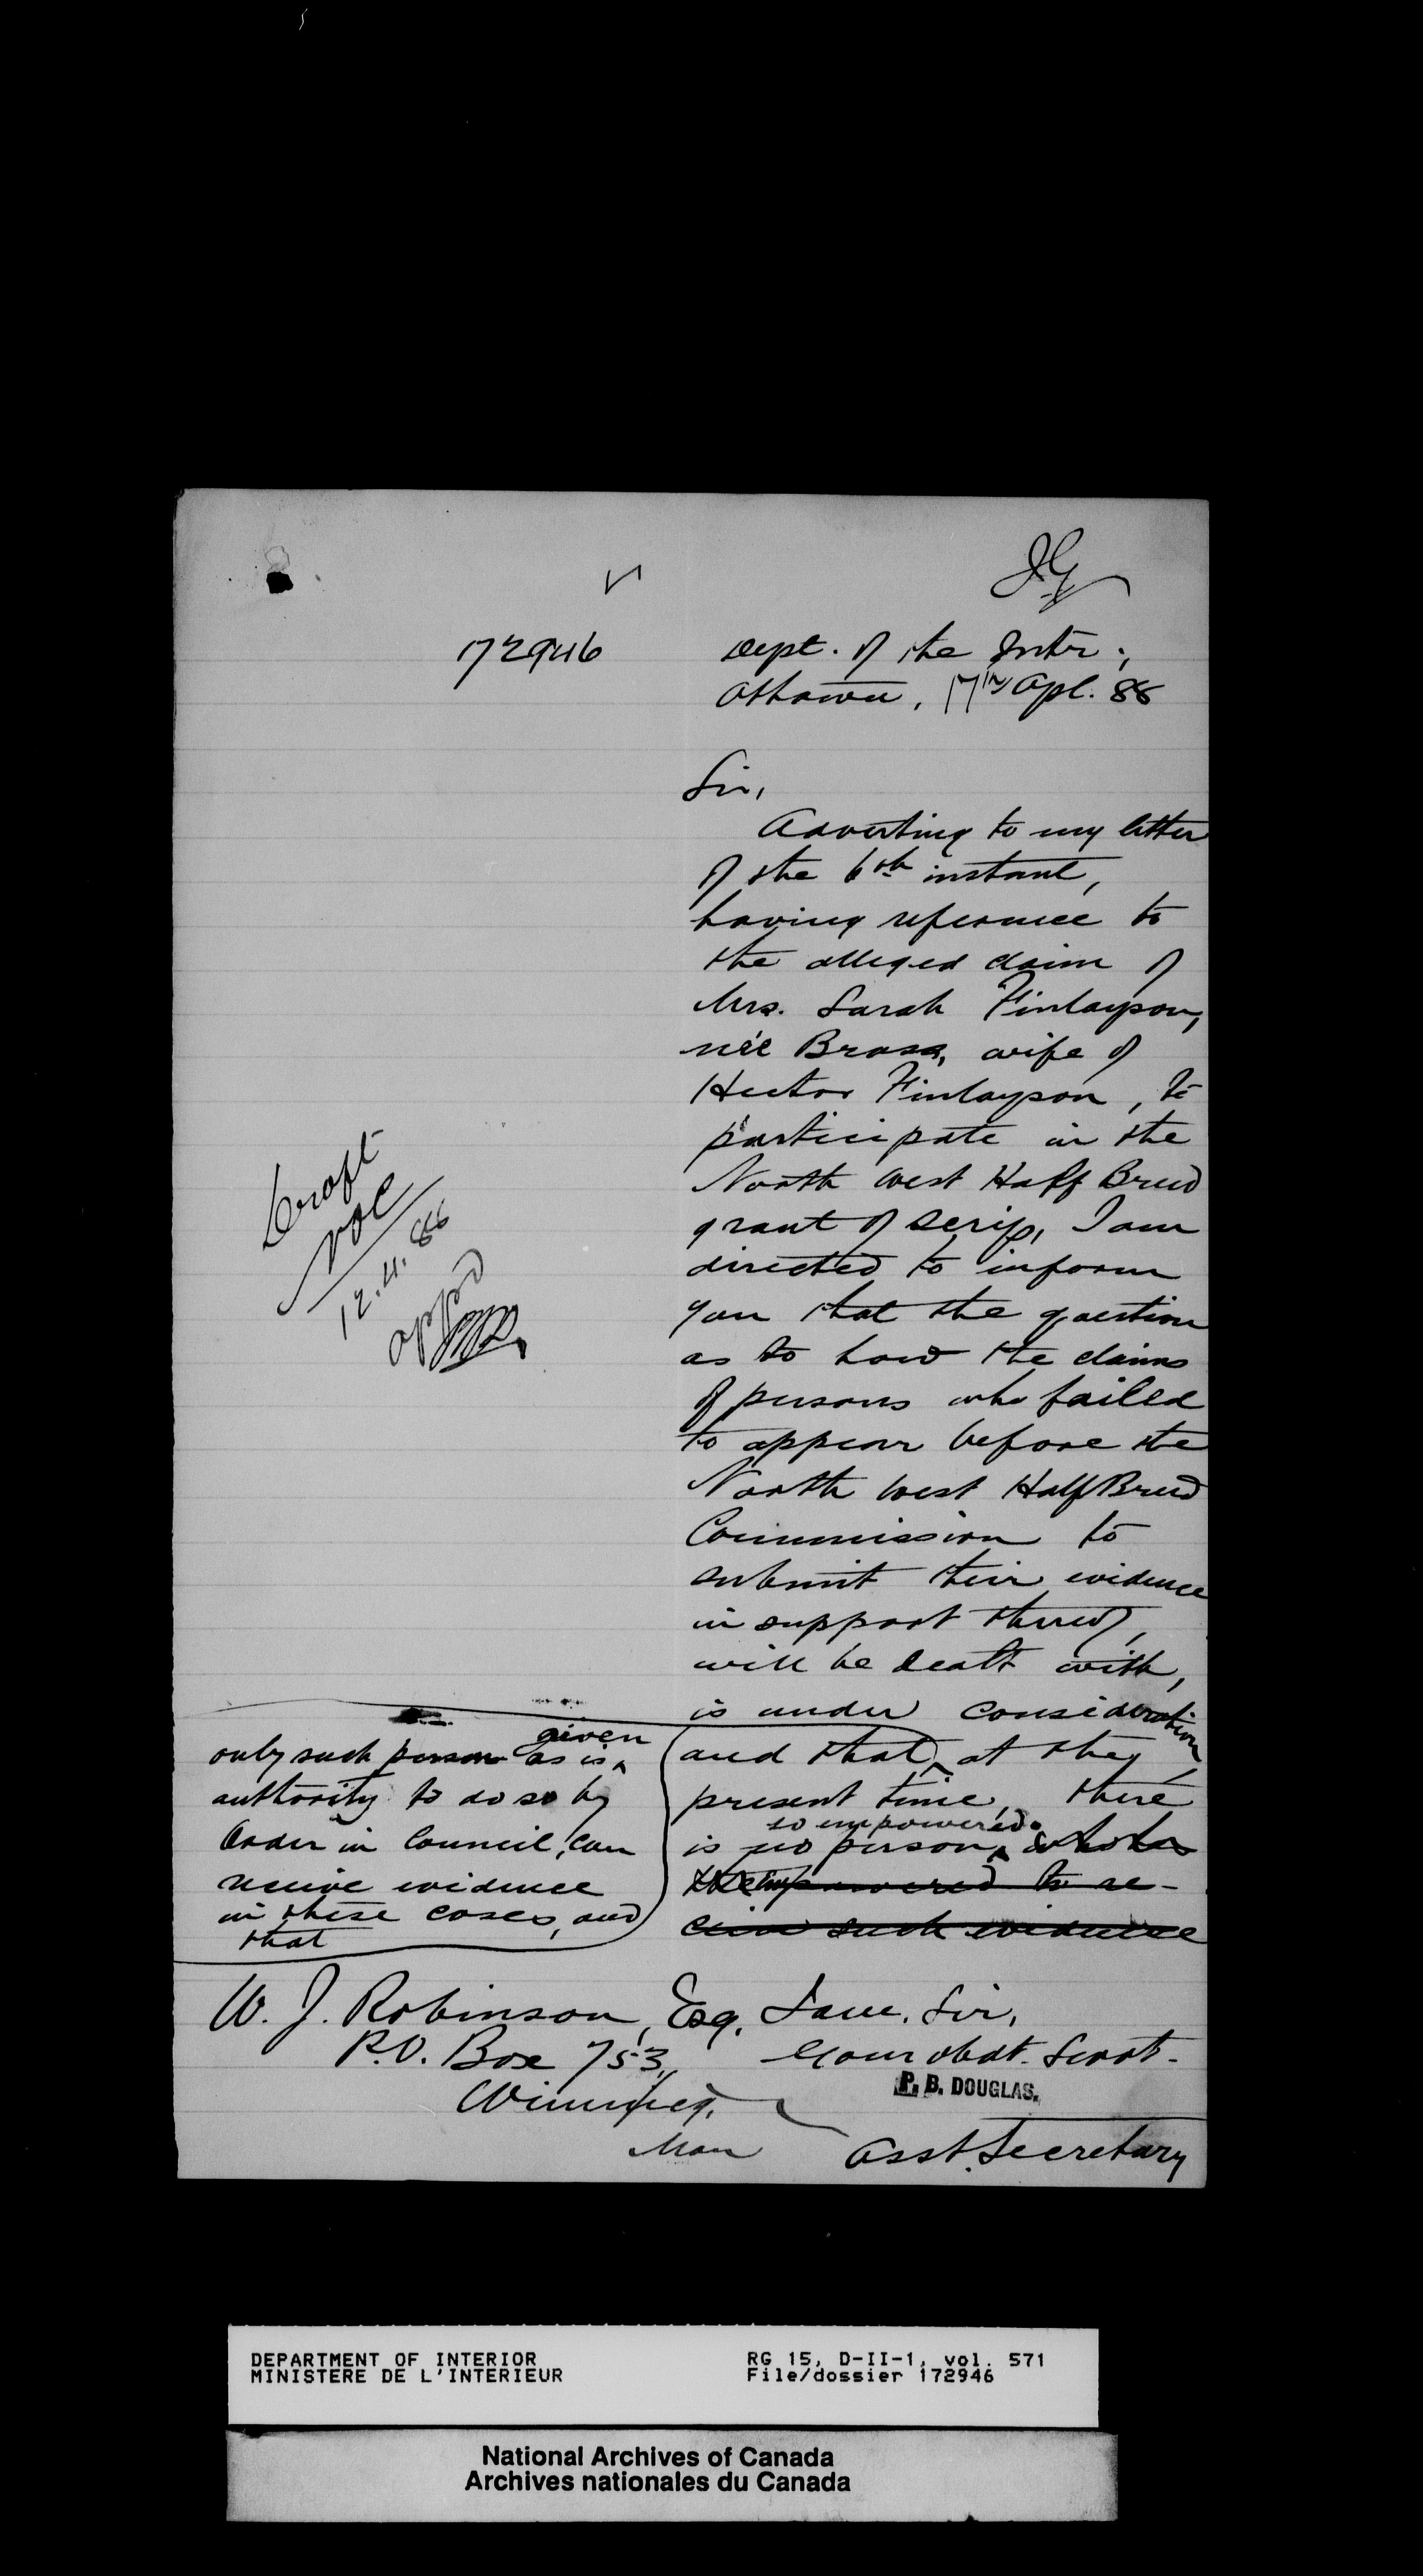 JG
172946
Dept. of the Intr.,
Ottawa, 17th Apl. 88
Sir,
Adverting to my letter
of the 6th instant,
having reference to
the alleged claim of
Mrs. Sarah Finlayson,
née Brass, wife of
Hector Finlayson, to
participate in the
North West Half Breed
grant of scrip, I am
directed to inform
you that the question
as to how the claims
of persons who failed
to appear before the
North West Half Breed
Commission to
submit their evidence
in support thereof,
will be dealt with,
is under consideration
and that, at the
present time, there
is no person so empowered.
empowered to re-
ceive such evidence
Draft
12.4.88
appd
only such person as is given
authority to do so by
Order in Council, can
receive evidence
in these cases, and
that
W. J. Robinson, Esq.
P.O. Box 753,
Winnipeg,
Man
I am, Sir,
Your obdt. servt.
P. B. DOUGLAS.
Asst. Secretary
DEPARTMENT OF INTERIOR
MINISTERE DE L'INTERIEUR
RG 15, D-II-1, vol. 571
File/dossier 172946
National Archives of Canada
Archives nationales du Canada